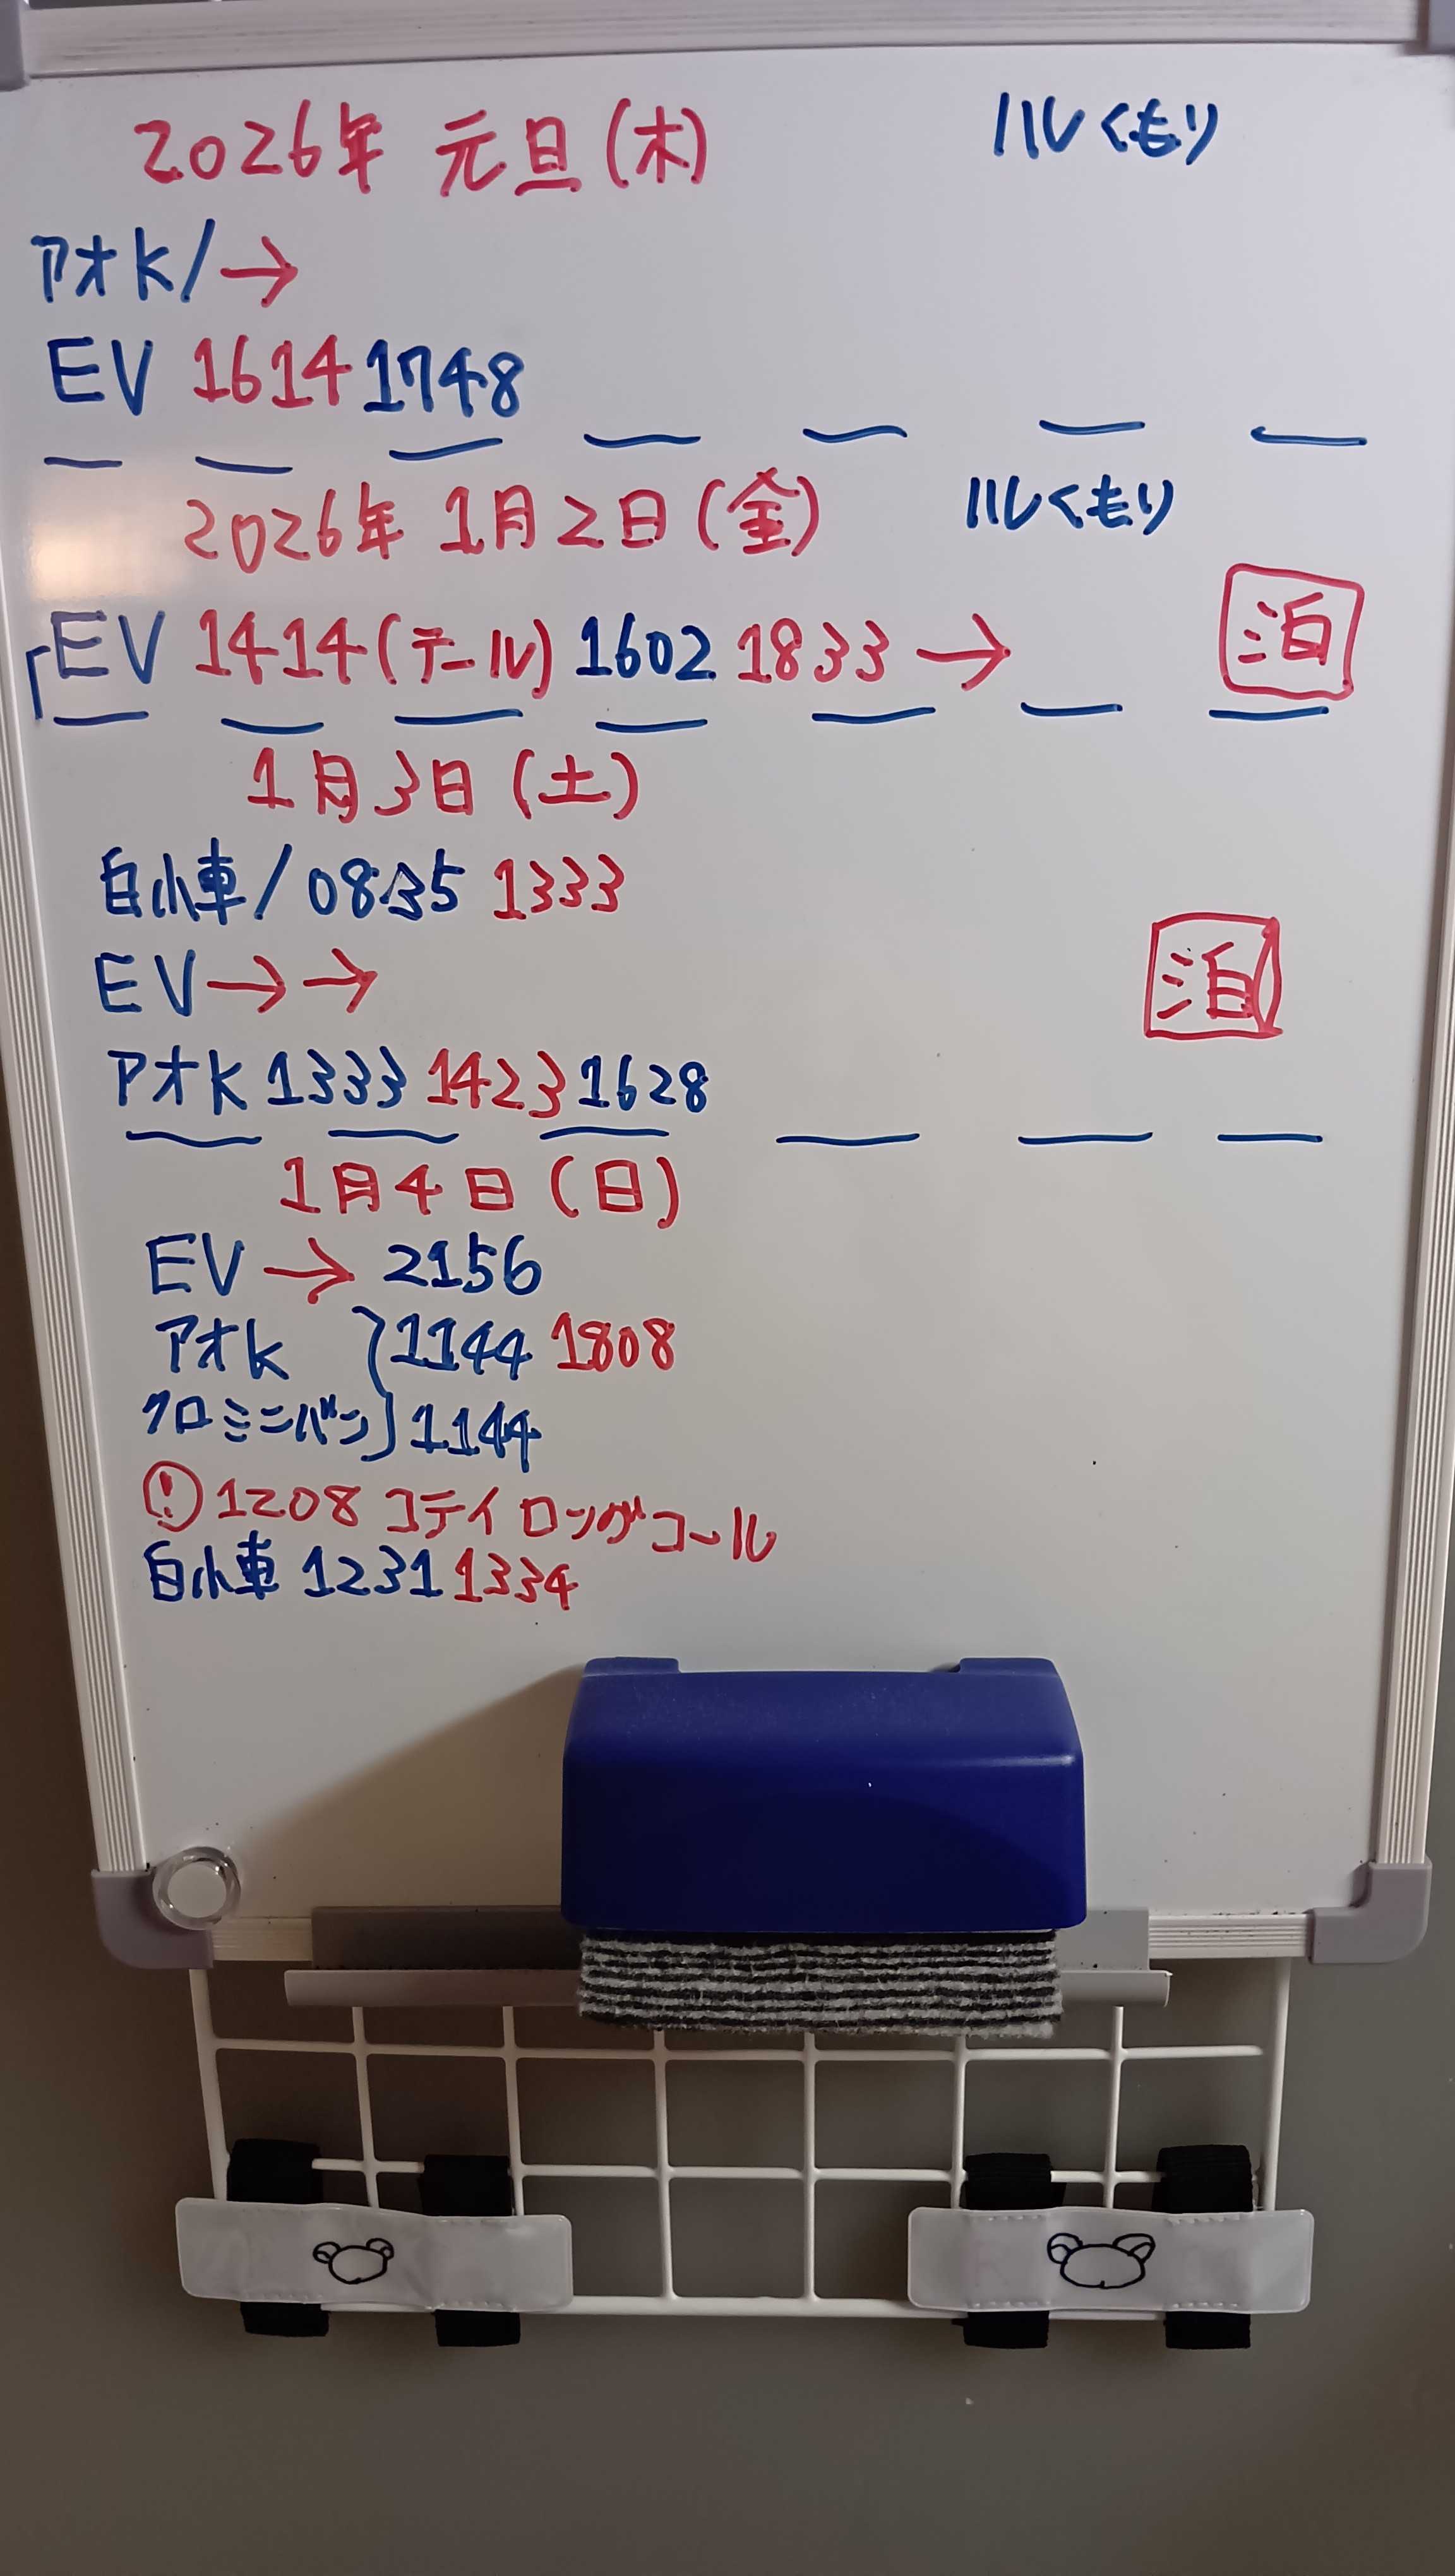 2026年 元旦(木) ハレくもり
アオK/→
EV 1614 1748
2026年 1月2日(金) ハレくもり
EV 1414(テール) 1602 1833→ 泊
1月3日(土)
白小車/0835 1333
EV→→ 泊
アオK 1333 1423 1628
1月4日(日)
EV→ 2156
アオK }1144 1808
クロミニバン}1144
! 1208 コテイロングコール
白小車 1231 1334